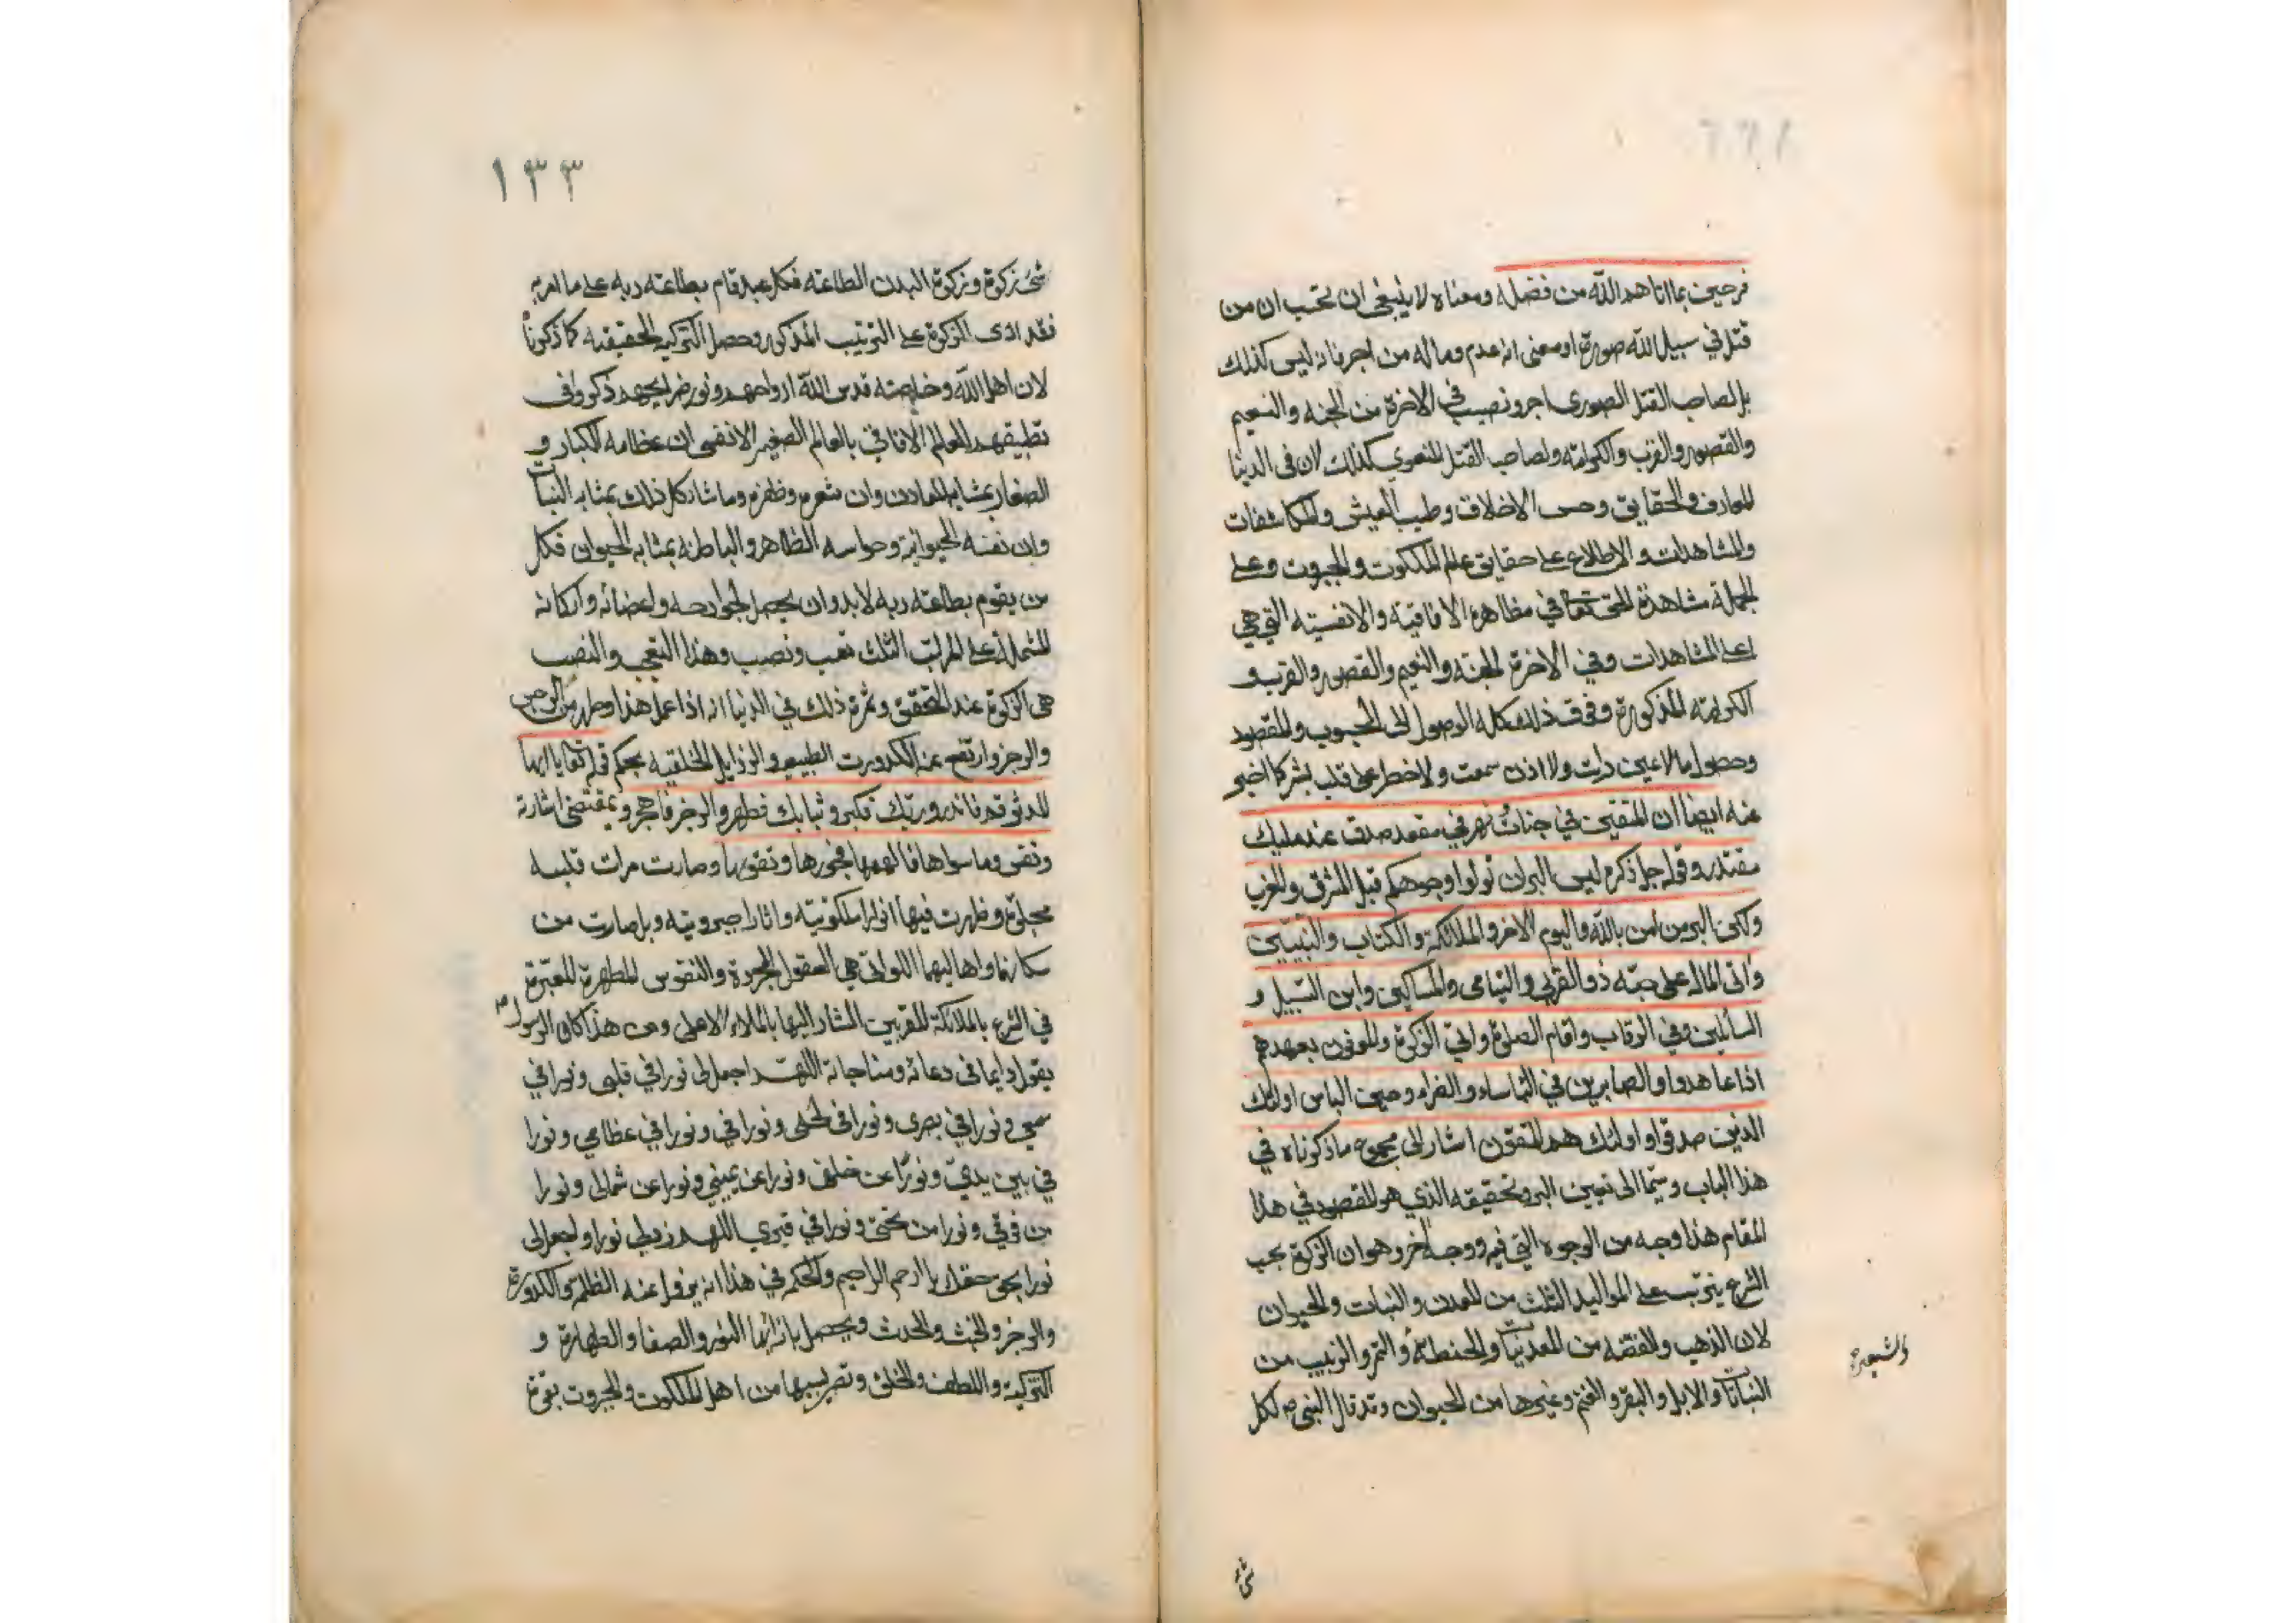 فرحين بما اتاهم الله من فضله ومعناه لا ينبغى ان تحسب ان من
قتل في سبيل الله صورة او معنى انه عدم وماله من اجر فانه ليس كذلك
بل لصاحب القتل الصورى اجر ونصيب في الاخرة من الجنه والنعيم
والقصور والقرب والكرامة ولصاحب القتل المعنوي كذلك لان فى الدنيا
المعارف والحقايق وحسن الاخلاق وطيب العيش والمكاشفات
والمشاهدات والاطلاع على حقايق عالم الملكوت والجبروت وعلى
الجملة مشاهدة الحق تعا في مظاهره الافاقية والانفسية التي هي
اعلى المشاهدات وفي الاخرة الجنة والنعيم والقصور والقرب و
الكرامة المذكورة وفوق ذلك كله الوصول الى المحبوب والمقصود
وحصول ما لا عين رات ولا اذن سمعت ولا خطر على قلب بشر كما اخبر
عنه ايضا ان المتقين في جنات ونهر في مقعد صدق عند مليك
مقتدر وقوله جل ذكره ليس البر ان تولوا وجوهكم قبل المشرق والمغرب
ولكن البر من امن بالله واليوم الاخر والملائكة والكتاب والنبيين
واتى المال على حبه ذو القربى واليتامى والمساكين وابن السبيل و
السائلين وفي الرقاب واقام الصلوة واتى الزكوة والموفون بعهدهم
اذا عاهدوا والصابرين في الباساء والضراء وحين الباس اولئك
الذين صدقوا واولئك هم المتقون اشار الى مجموع ما ذكرناه في
هذا الباب وسيما الى تعيين البر وتحقيقه الذي هو المقصود في هذا
المقام هذا وجه من الوجوه التي فيه ووجه اخر وهو ان الزكوة بحسب
الشرع يترتب على المواليد الثلث من المعدن والنبات والحيوان
لان الذهب والفضه من المعدنيات والحنطة والتمر والزبيب من
والشعير
النباتات والابل والبقر والغنم وغيرها من الحيوان وقد قال النبى ص لكل
شئ
١٣٣
شئ زكوة وزكوة البدن الطاعه فكل عبد قام بطاعة ربه على ما امر به
فقد ادى الزكوة على الترتيب المذكور وحصل التزكيه الحقيقيه كما ذكرنا
لان اهل الله وخاصته قدس الله ارواحهم ونور ضرايحهم ذكروا فى
تطبيقهم العالم الافاقي بالعالم الصغير الانفسى ان عظامه الكبار و
الصغار بمثابه المعادن وان شعره وظفره وما شاركل ذلك بمثابه النبات
وان نفسه الحيوانية وحواسه الظاهر والباطنه بمثابه الحيوان فكل
من يقوم بطاعة ربه لابد وان يحصل لجوارحه واعضائه واركانه
المشتملة على المراتب الثلث تعب ونصب وهذا التعب والنصب
هى الزكوة عند التحقيق وثمرة ذلك في الدنيا انه اذا عمل هذا وطهر من الرجس
والرجز وارتفع عنه الكدورت الطبيعيه والرذايل الخلقيه بحكم قوله تعا يا ايها
المدثر قم فانذر وربك فكبر وثيابك فطهر والرجز فاهجر وبمقتضى اشارة
ونفس وما سواها فالهمها فجورها وتقويها وصارت مرات قلبه
مجلوة وظهرت فيها انوار ملكوتية واثارا جبروتيه وبل صارت من
سكانها واهاليها اللواتى هي العقول المجردة والنفوس المطهرة المعبرة
في الشرع بالملائكة المقربين المشار اليها بالملاء الاعلى ومن هذا كان الرسول ص
يقول دايما فى دعائه ومناجاته اللهم اجعل لى نورا في قلبى ونورا في
سمعي ونورا في بصرى ونورا فى لحمى ونورا في ونورا في عظامي ونورا
في بين يدي ونورا عن خلفى ونورا عن يميني ونورا عن شمالى ونورا
من فوقي ونورا من تحتى ونورا في قبري اللهم زدنى نورا واجعل لى
نورا بحق حقك يا ارحم الراحمين والحكم في هذا انه يزول عنه الظلمة والكدورة
والرجز والخبث والحدث ويحصل بازائها النور والصفا والطهارة و
التزكية واللطف والخلق وتصير بسببها من اهل الملكوت والجبروت بقوة